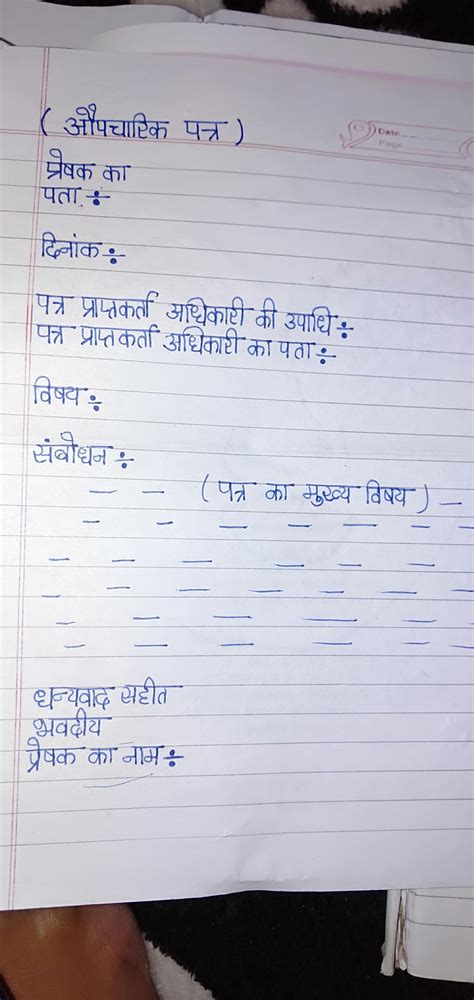 Date
Page
( औपचारिक पत्र )
प्रेषक का
पता ÷
दिनांक ÷
पत्र प्राप्तकर्ता अधिकारी की उपाधि ÷
पत्र प्राप्तकर्ता अधिकारी का पता ÷
विषय ÷
संबोधन ÷
— — ( पत्र का मुख्य विषय ) —
धन्यवाद सहीत
भवदीय
प्रेषक का नाम ÷